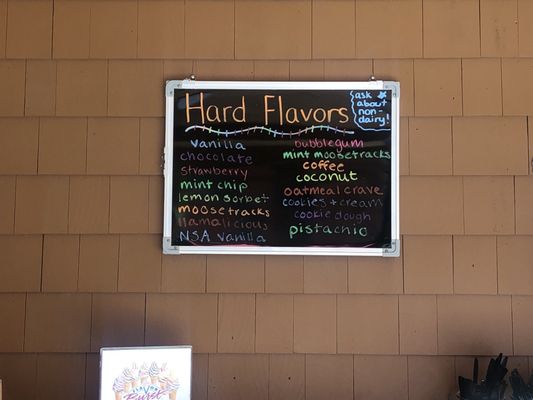 Hard Flavors
ask
about
non-
dairy!
vanilla
chocolate
strawberry
mint chip
lemon sorbet
moosetracks
llamalicious
NSA vanilla
bubblegum
mint moosetracks
coffee
coconut
oatmeal crave
cookies + cream
cookie dough
pistachio
Burst